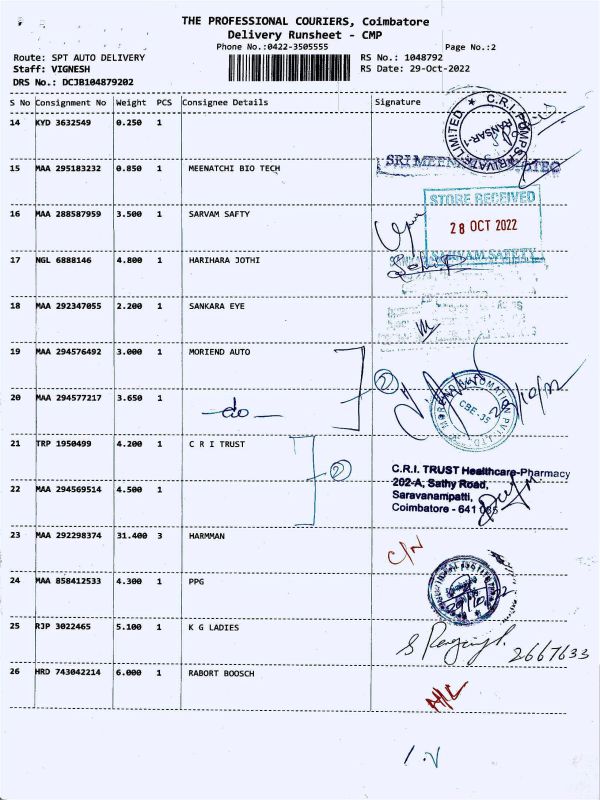 THE PROFESSIONAL COURIERS, Coimbatore
Delivery Runsheet - CMP
Phone No.:0422-3505555 Page No.:2
Route: SPT AUTO DELIVERY RS No.: 1048792
Staff: VIGNESH RS Date: 29-Oct-2022
DRS No.: DCJB104879202
S No Consignment No Weight PCS Consignee Details Signature
14 KYD 3632549 0.250 1
C.R.I. PUMPS PRIVATE LIMITED
15 MAA 295183232 0.850 1 MEENATCHI BIO TECH
STORE RECEIVED
16 MAA 288587959 3.500 1 SARVAM SAFTY
28 OCT 2022
SARVAM SAFETY
17 NGL 6888146 4.800 1 HARIHARA JOTHI
18 MAA 292347055 2.200 1 SANKARA EYE
19 MAA 294576492 3.000 1 MORIEND AUTO
2
20 MAA 294577217 3.650 1
-do-
CBE-35
21 TRP 1950499 4.200 1 C R I TRUST
2
C.R.I. TRUST Healthcare-Pharmacy
202-A, Sathy Road,
Saravanampatti,
Coimbatore - 641 035
22 MAA 294569514 4.500 1
23 MAA 292298374 31.400 3 HARMMAN
C/N
24 MAA 858412533 4.300 1 PPG
25 RJP 3022465 5.100 1 K G LADIES
2667633
26 HRD 743042214 6.000 1 RABORT BOOSCH